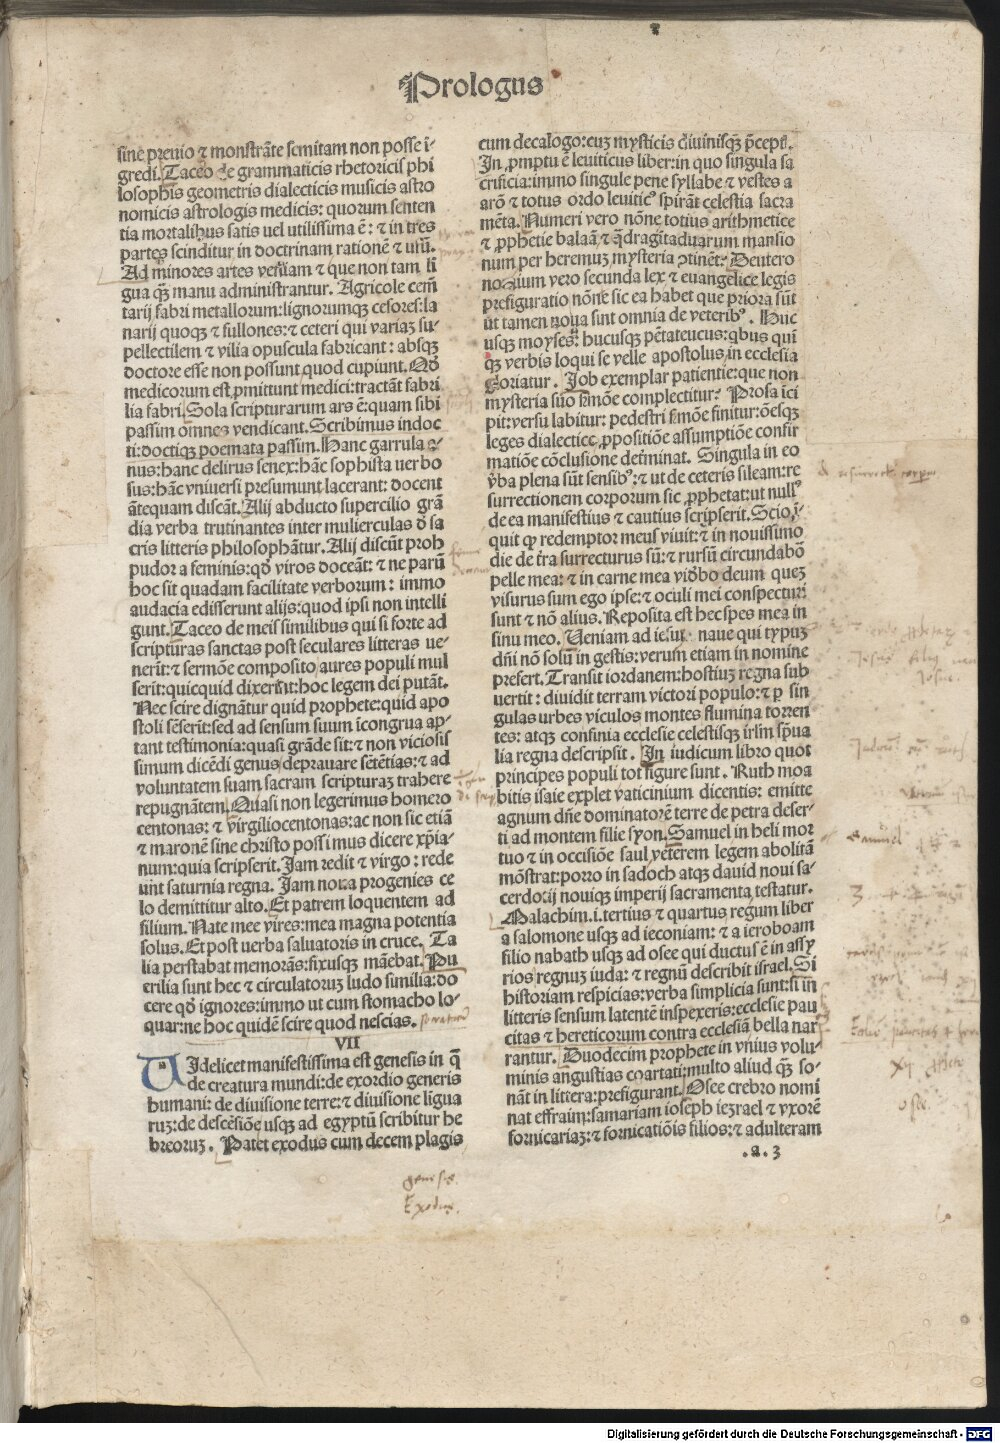 Prologus
sine preuio ⁊ monstrāte semitam non posse ī-
gredi. Taceo de grammaticis rhetoricis phi
losophis geometris dialecticis musicis astro
nomicis astrologis medicis: quorum senten
tia mortalibus satis uel utilissima ē: ⁊ in tres
partes scinditur in doctrinam rationē ⁊ usū.
Ad minores artes veniam ⁊ que non tam lī
gua qꝫ manu administrantur. Agricole cem̄
tarij fabri metallorum: lignorumqꝫ cesores: la
narij quoqꝫ ⁊ fullones: ⁊ ceteri qui variaꝫ su-
pellectilem ⁊ vilia opuscula fabricant: absqꝫ
doctore esse non possunt quod cupiunt. Qd̄
medicorum est ꝓmittunt medici: tractāt fabri
lia fabri. Sola scripturarum ars ē: quam sibi
passim omnes vendicant. Scribimus indoc
ti: doctiqꝫ poemata passim. Hanc garrula a-
nus: hanc delirus senex: hāc sophista uerbo
sus: hāc vniuersi presumunt lacerant: docent
ātequam discāt. Alij abducto supercilio grā
dia verba trutinantes inter mulierculas d̄ sa
cris litteris philosophātur. Alij discūt proh
pudor a feminis: qd̄ viros doceāt: ⁊ ne parū
hoc sit quadam facilitate verborum: immo
audacia edisserunt alijs: quod ipsi non intelli
gunt. Taceo de meis similibus qui si forte ad
scripturas sanctas post seculares litteras ue-
nerīt: ⁊ sermōe composito aures populi mul
serīt: quicquid dixerīt: hoc legem dei putāt.
Nec scire dignātur quid prophete: quid apo
stoli sēserīt: sed ad sensum suum īcongrua ap-
tant testimonia: quasi grāde sit: ⁊ non viciosis
simum dicēdi genus deprauare sētētias: ⁊ ad
voluntatem suam sacram scripturaꝫ trahere
repugnātem. Quasi non legerimus homero
centonas: ⁊ virgiliocentonas: ac non sic etiā
⁊ maronē sine christo possimus dicere xp̄ia-
num: quia scripserit. Jam redit ⁊ virgo: rede
unt saturnia regna. Jam noua progenies ce
lo demittitur alto. Et patrem loquentem ad
filium. Nate mee vires: mea magna potentia
solus. Et post uerba saluatoris in cruce. Ta
lia perstabat memorās: fixusqꝫ māebat. Pu
erilia sunt hec ⁊ circulatoruꝫ ludo similia: do
cere qd̄ ignores: immo ut cum stomacho lo-
quar: ne hoc quidē scire quod nescias.
VII
UIdelicet manifestissima est genesis in q̄
de creatura mundi: de exordio generis
humani: de diuisione terre: ⁊ diuisione ligua
ruꝫ: de descēsiōe usqꝫ ad egyptū scribitur he
breoruꝫ. Patet exodus cum decem plagis
genesis.
Exodus.
cum decalogo: cuꝫ mysticis diuinisqꝫ p̄cept̄.
In ꝓmptu ē leuiticus liber: in quo singula sa
crificia: immo singule pene syllabe ⁊ vestes a
arō ⁊ totus ordo leuiticꝰ spirāt celestia sacra
mēta. Numeri vero nōne totius arithmetice
⁊ ꝓphetie balaā ⁊ q̄dragītaduarum mansio
num per heremuꝫ mysteria ꝯtinēt: Deutero
nomium vero secunda lex ⁊ euangelice legis
prefiguratio nōne sic ea habet que priora sūt
ut tamen noua sint omnia de veteribꝰ. Huc
usqꝫ moyses: hucusqꝫ pētateucus: qbus qui
qꝫ verbis loqui se velle apostolus in ecclesia
gloriatur. Job exemplar patientie: que non
mysteria suo sermōe complectitur: Prosa īci
pit: versu labitur: pedestri sermōe finitur: oēsqꝫ
leges dialectice ꝓpositiōe assumptiōe confir
matiōe cōclusione determinat. Singula in eo
verba plena sūt sensibꝰ: ⁊ ut de ceteris sileam: re
surrectionem corporum sic ꝓphetat: ut nullꝰ
de ea manifestius ⁊ cautius scripserit. Scio in
quit qp redemptor meus viuit: ⁊ in nouissimo
die de terra surrecturus sū: ⁊ rursū circundabō
pelle mea: ⁊ in carne mea videbo deum queꝫ
visurus sum ego ipse: ⁊ oculi mei conspecturi
sunt ⁊ nō alius. Reposita est hec spes mea in
sinu meo. Veniam ad iesum naue qui typuꝫ
dn̄i nō solū in gestis: verum etiam in nomine
prefert. Transit iordanem: hostiuꝫ regna sub
uertit: diuidit terram victori populo: ⁊ ꝑ sin
gulas urbes viculos montes flumina torren
tes: atqꝫ confinia ecclesie celestisqꝫ irl̄m sp̄ua
lia regna descripsit. In iudicum libro quot
principes populi tot figure sunt. Ruth moa
bitis isaie explet vaticinium dicentis: emitte
agnum dn̄e dominatorē terre de petra deser-
ti ad montem filie syon. Samuel in heli mor
tuo ⁊ in occisiōe saul veterem legem abolitā
mōstrat: porro in sadoch atqꝫ dauid noui sa-
cerdotij nouiqꝫ imperij sacramenta testatur.
Malachim .i. tertius ⁊ quartus regum liber
a salomone usqꝫ ad ieconiam: ⁊ a ieroboam
filio nabath usqꝫ ad osee qui ductus ē in assy
rios regnuꝫ iuda: ⁊ regnū describit israel. Si
historiam respicias: verba simplicia sunt: si in
litteris sensum latentē inspexeris: ecclesie pau
citas ⁊ hereticorum contra ecclesiā bella nar
rantur. Duodecim prophete in vnius volu-
minis angustias coartati: multo aliud qꝫ so-
nāt in littera: prefigurant. Osee crebro nomi
nat effraim: samariam ioseph iezrael ⁊ vxorē
fornicariaꝫ: ⁊ fornicatiōis filios: ⁊ adulteram
.a.3
Samuel
Digitalisierung gefördert durch die Deutsche Forschungsgemeinschaft - DFG